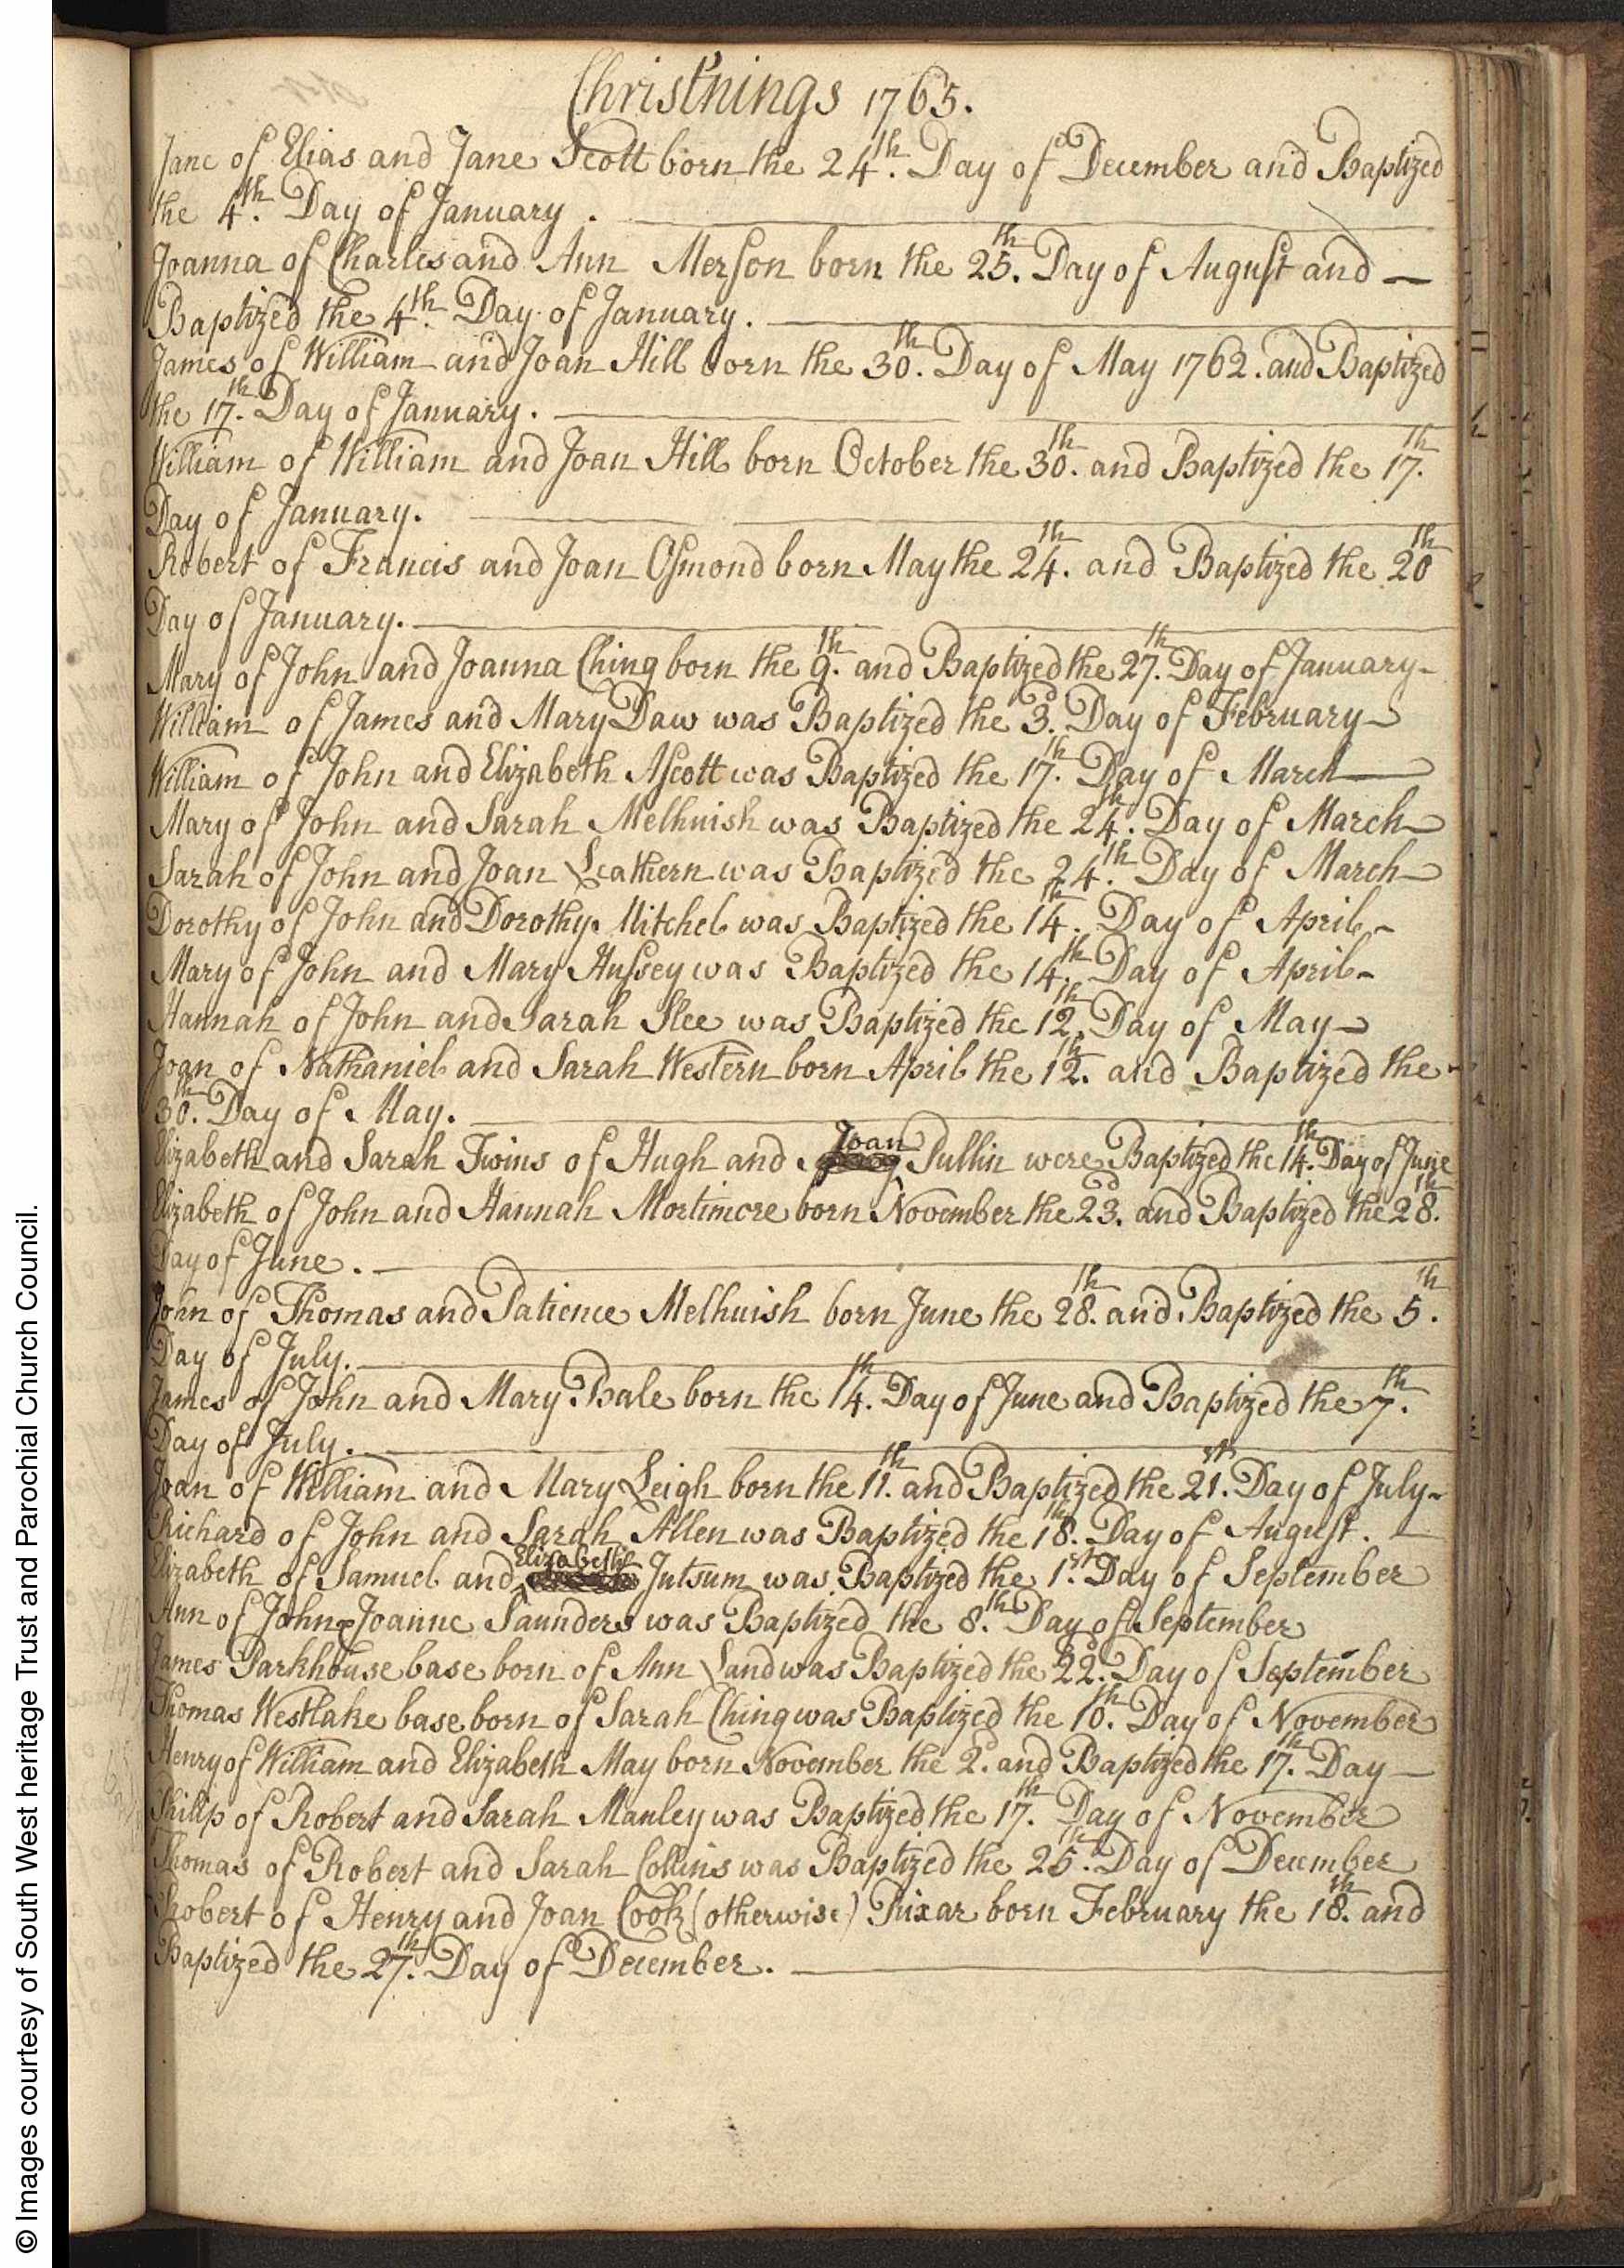 Christnings 1765.
Jane of Elias and Jane Scott born the 24th. Day of December and Baptized
the 4th. Day of January.
Joanna of Charles and Ann Merson born the 25th. Day of August and —
Baptized the 4th. Day of January.
James of William and Joan Hill born the 30th. Day of May 1762. and Baptized
the 17th. Day of January.
William of William and Joan Hill born October the 30th. and Baptized the 17th.
Day of January.
Robert of Francis and Joan Osmond born May the 24th. and Baptized the 20th
Day of January.
Mary of John and Joanna Ching born the 9th. and Baptized the 27th. Day of January
William of James and Mary Daw was Baptized the 3d. Day of February
William of John and Elizabeth Ascott was Baptized the 17th. Day of March
Mary of John and Sarah Melhuish was Baptized the 24th. Day of March
Sarah of John and Joan Leathern was Baptized the 24th. Day of March
Dorothy of John and Dorothy Mitchel was Baptized the 14th. Day of April
Mary of John and Mary Hussey was Baptized the 14th. Day of April
Hannah of John and Sarah Slee was Baptized the 12th. Day of May
Joan of Nathaniel and Sarah Western born April the 12th. and Baptized the
30th. Day of May.
Elizabeth and Sarah Twins of Hugh and Joan Pullin were Baptized the 14th. Day of June
Elizabeth of John and Hannah Mortimore born November the 23d. and Baptized the 28th.
Day of June.
John of Thomas and Patience Melhuish born June the 28th. and Baptized the 5th.
Day of July.
James of John and Mary Bale born the 14th. Day of June and Baptized the 7th.
Day of July.
Joan of William and Mary Leigh born the 11th. and Baptized the 21st. Day of July
Richard of John and Sarah Allen was Baptized the 18th. Day of August.
Elizabeth of Samuel and Elizabeth Jutsum was Baptized the 1st. Day of September
Ann of John & Joanne Saunders was Baptized the 8th. Day of September
James Parkhouse base born of Ann Land was Baptized the 22d. Day of September
Thomas Westlake base born of Sarah Ching was Baptized the 10th. Day of November
Henry of William and Elizabeth May born November the 2d. and Baptized the 17th. Day —
Philip of Robert and Sarah Manley was Baptized the 17th. Day of November
Thomas of Robert and Sarah Collins was Baptized the 25th. Day of December
Robert of Henry and Joan Cook (otherwise) Rixar born February the 18th. and
Baptized the 27th. Day of December.
© Images courtesy of South West heritage Trust and Parochial Church Council.